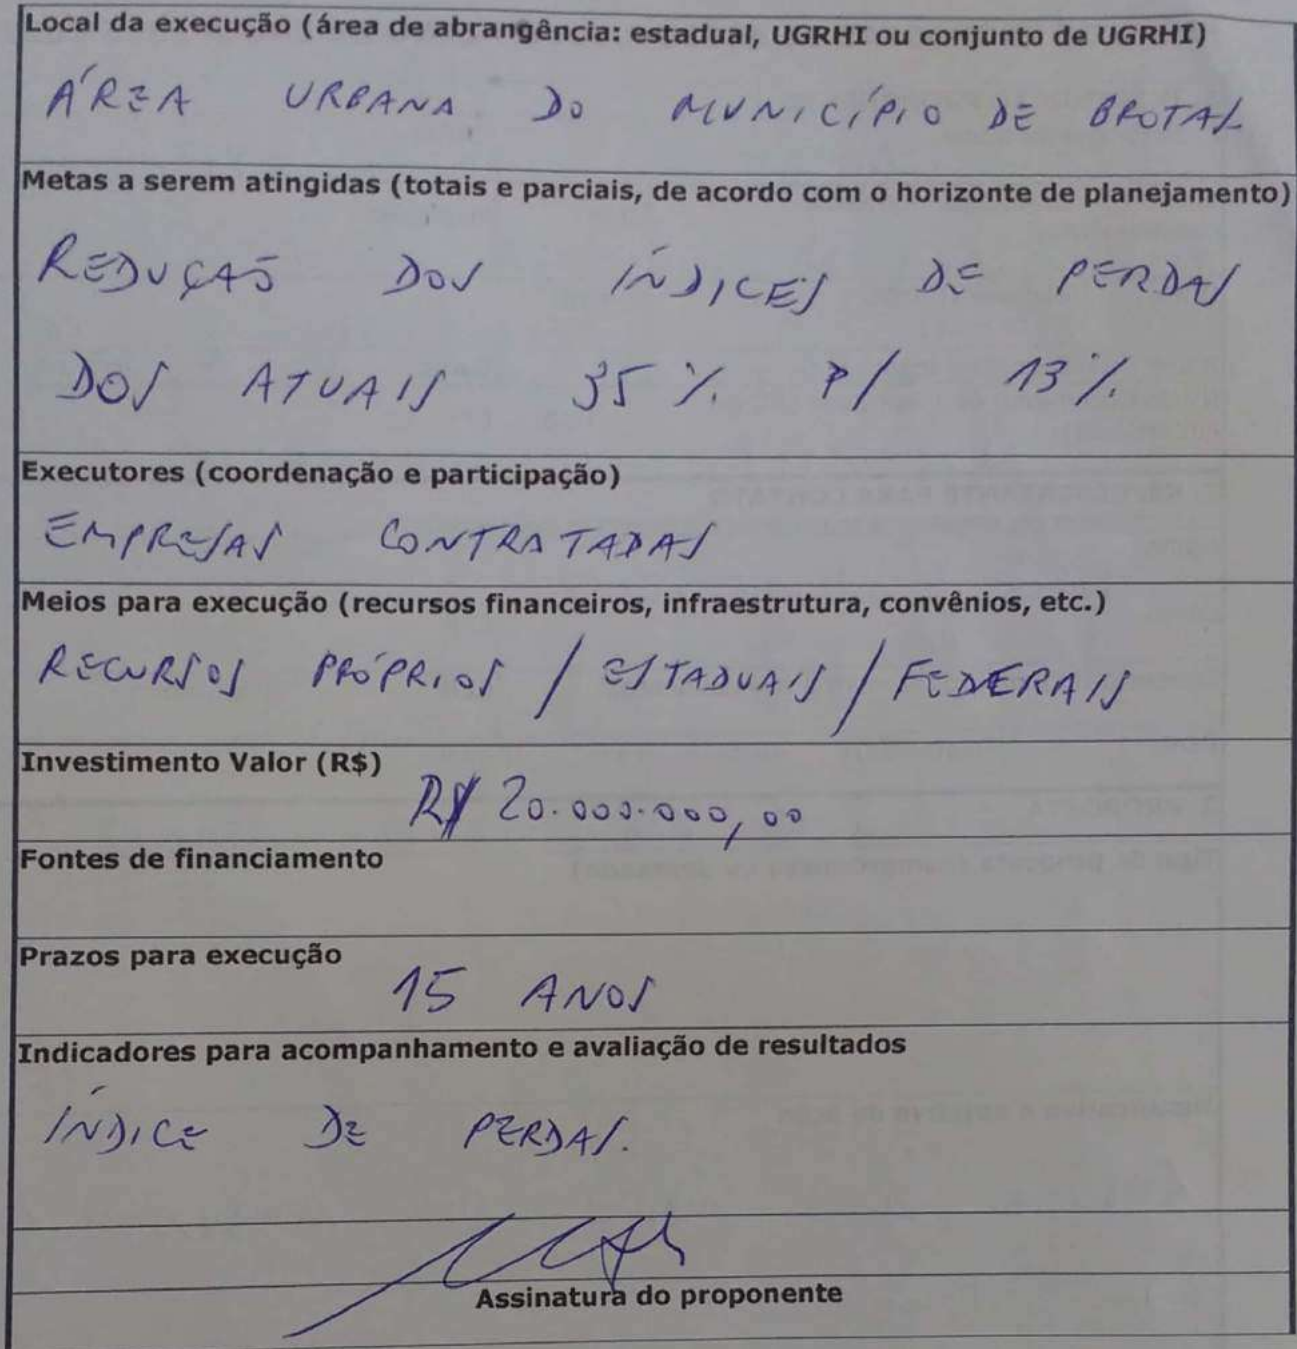 Local da execução (área de abrangência: estadual, UGRHI ou conjunto de UGRHI)
ÁREA URBANA DO MUNICÍPIO DE BROTAS
Metas a serem atingidas (totais e parciais, de acordo com o horizonte de planejamento)
REDUÇÃO DOS ÍNDICES DE PERDAS
DOS ATUAIS 35% P/ 13%
Executores (coordenação e participação)
EMPRESAS CONTRATADAS
Meios para execução (recursos financeiros, infraestrutura, convênios, etc.)
RECURSOS PRÓPRIOS / ESTADUAIS / FEDERAIS
Investimento Valor (R$)
R$ 20.000.000,00
Fontes de financiamento
Prazos para execução
15 ANOS
Indicadores para acompanhamento e avaliação de resultados
ÍNDICE DE PERDAS.
Assinatura do proponente